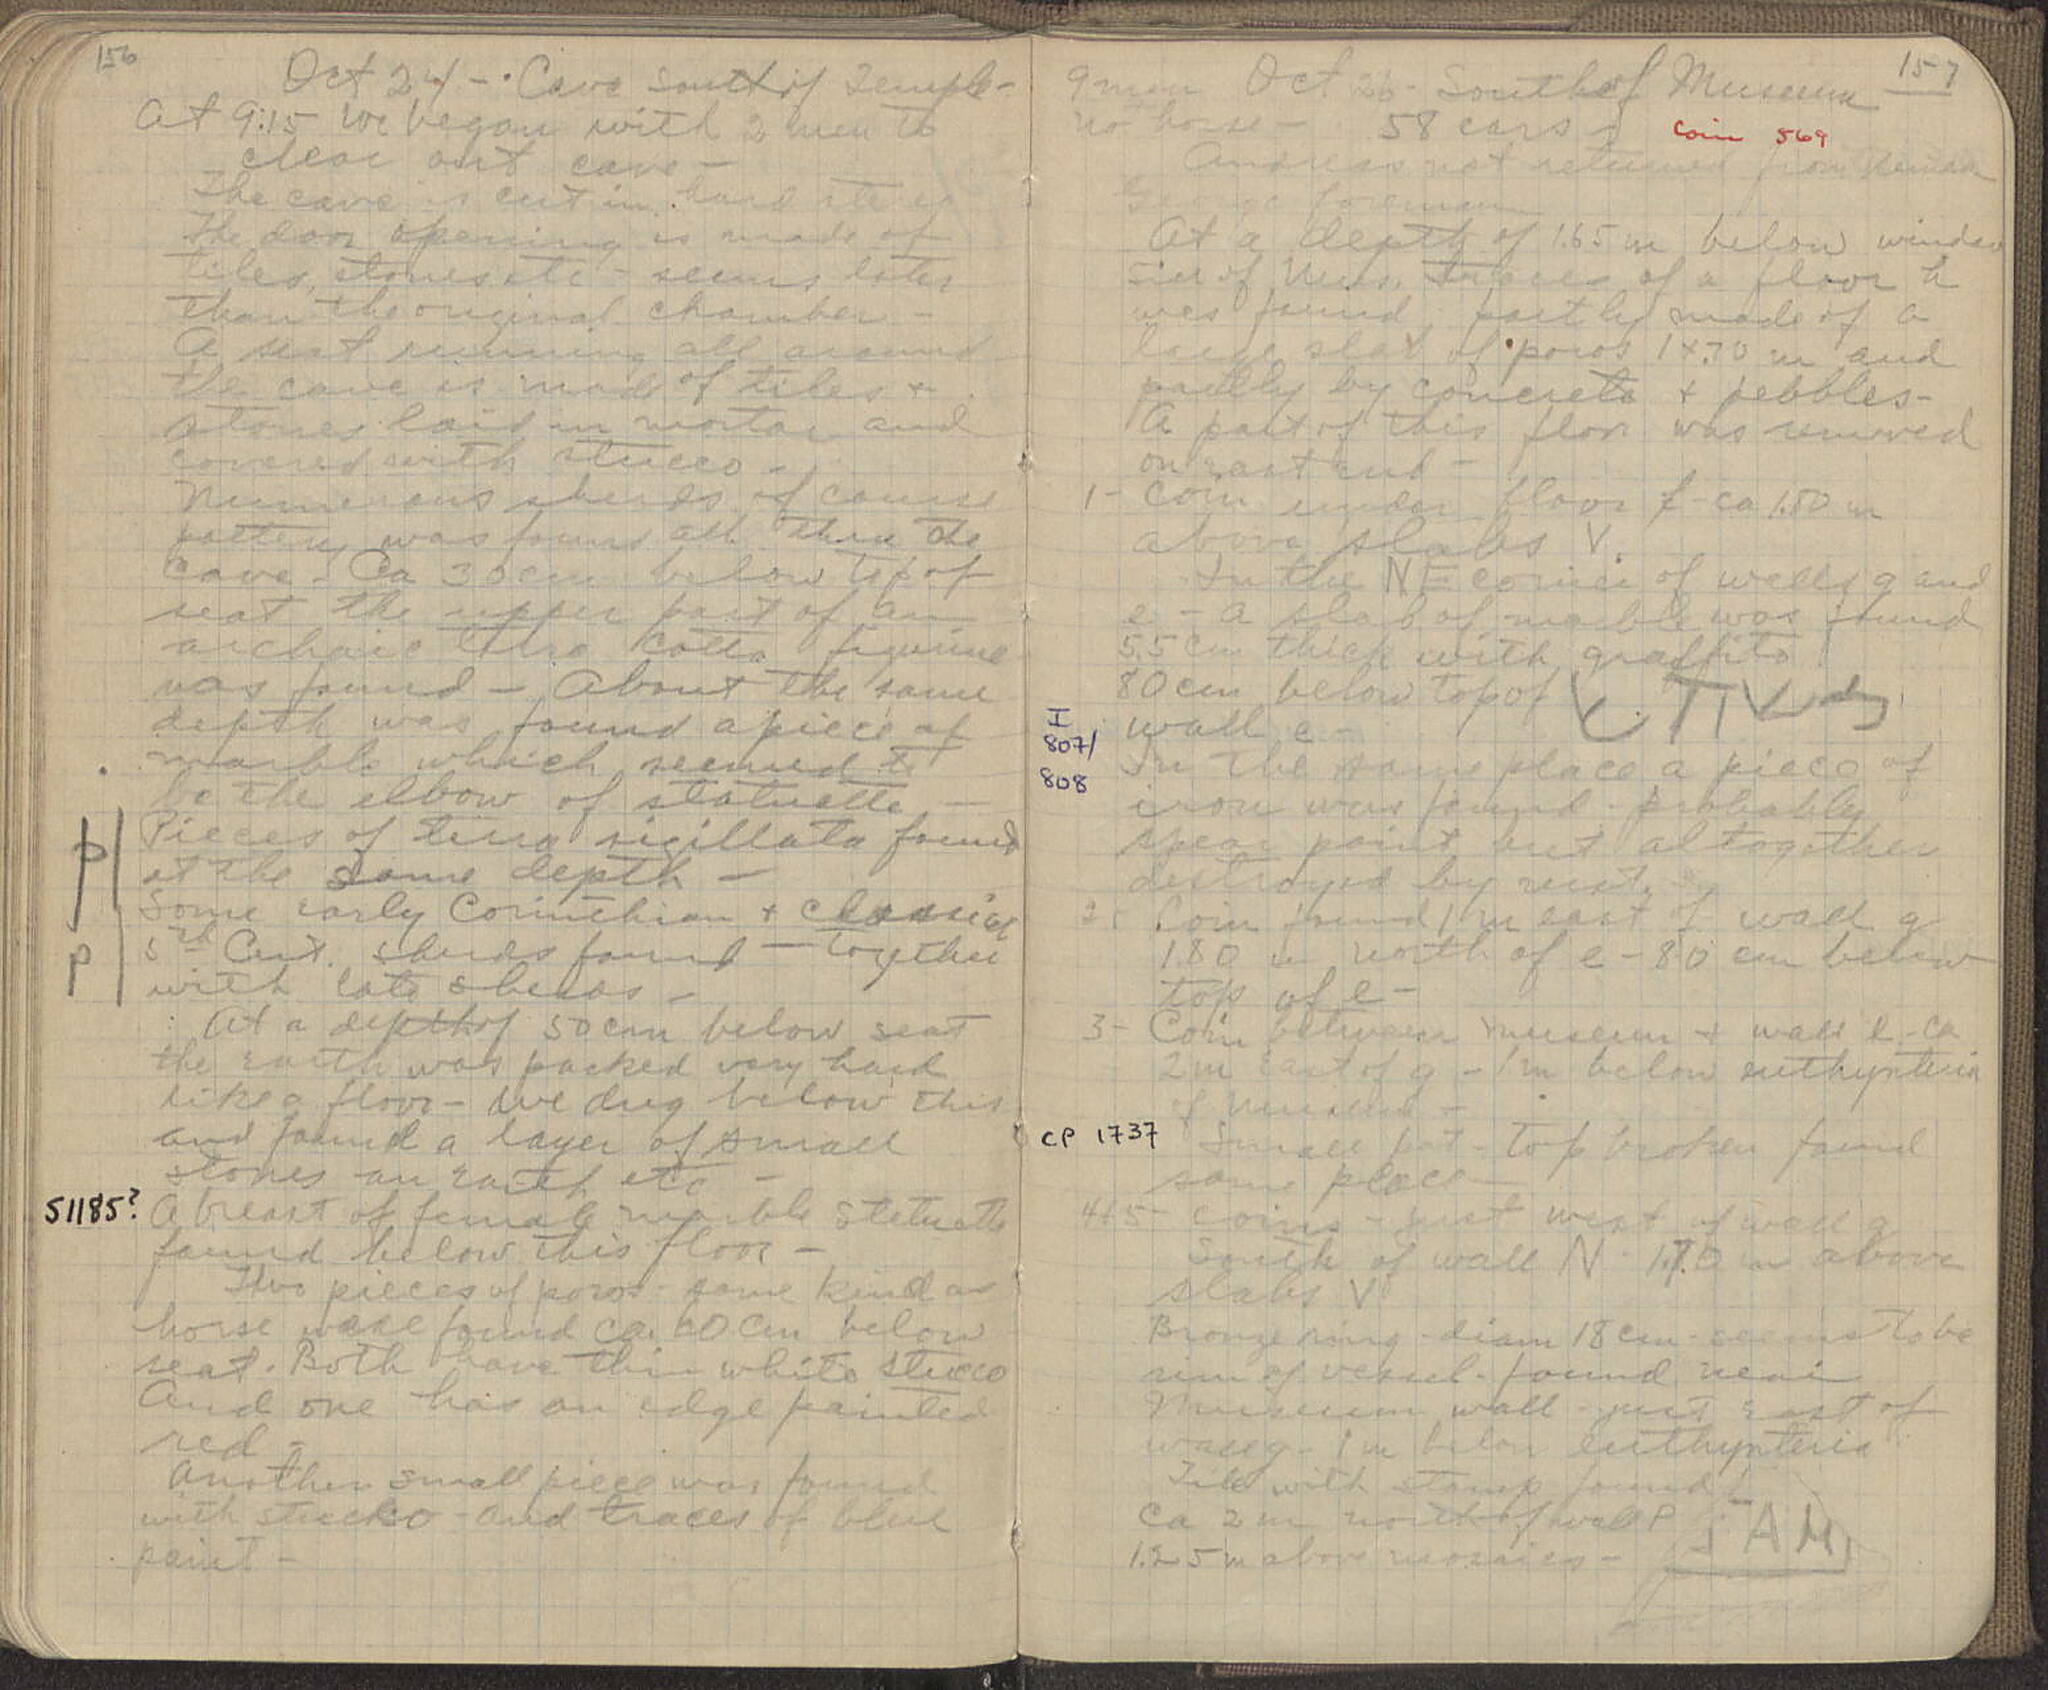 156
Oct 24 - Cave south of Temple -
At 9:15 we began with 2 men to
clear out cave -
The cave is cut in hard stereo
The door opening is made of
tiles, stones etc - seems later
than the original chamber -
A seat running all around
the cave is made of tiles +
stones laid in mortar and
covered with stucco -
Numerous sherds of course
pottery was found all thru the
cave - Ca 30 cm below top of
seat the upper part of an
archaic terra cotta figurine
was found - About the same
depth was found a piece of
marble which seemed to
be the elbow of statuette -
P Pieces of terra sigillata found
at the same depth -
Some early Corinthian + classical
P 5th Cent. sherds found - together
with late sherds -
At a depth of 50 cm below seat
the earth was packed very hard
like a floor - We dug below this
and found a layer of small
stones an earth etc -
S1185? A breast of female marble statuette
found below this floor -
Two pieces of poros - same kind as
horse were found ca. 60 cm below
seat. Both have thin white stucco
And one has an edge painted
red -
Another small piece was found
with stucco - and traces of blue
paint -
157
9 men Oct 26 - South of Museum
no horse - 58 cars coin 569
Andreas not returned from
George foreman
At a depth of 1.65 m below window
sier of Mus. traces of a floor h
was found partly made of a
large slab of poros 1 x .70 m and
partly by concrete + pebbles -
A part of this floor was removed
on east end -
1 - Coin under floor f - ca 1.50 m
above slabs V.
In the NE corner of walls g and
e - a slab of marble was found
5.5 cm thick with graffito
80 cm below top of
wall e -
I
807/
808
In the same place a piece of
iron was found - probably
spear point but altogether
destroyed by rust -
2 - Coin found 1 m east of wall g
1.80 m north of e - 80 cm below
top of e -
3 - Coin between museum + wall e - ca
2 m east of g - 1 m below euthynteria
of museum -
CP 1737 Small pot - top broken found
same place -
4+5 - Coins - just west of wall g
South of wall N 1.70 m above
slabs V
Bronze ring - diam 18 cm - seems to be
rim of vessel - found near
Museum wall - just east of
wall g - 1 m below euthynteria
Tile with stamp found
Ca 2 m north of wall P
1.25 m above mosaics - ΙΑΜ